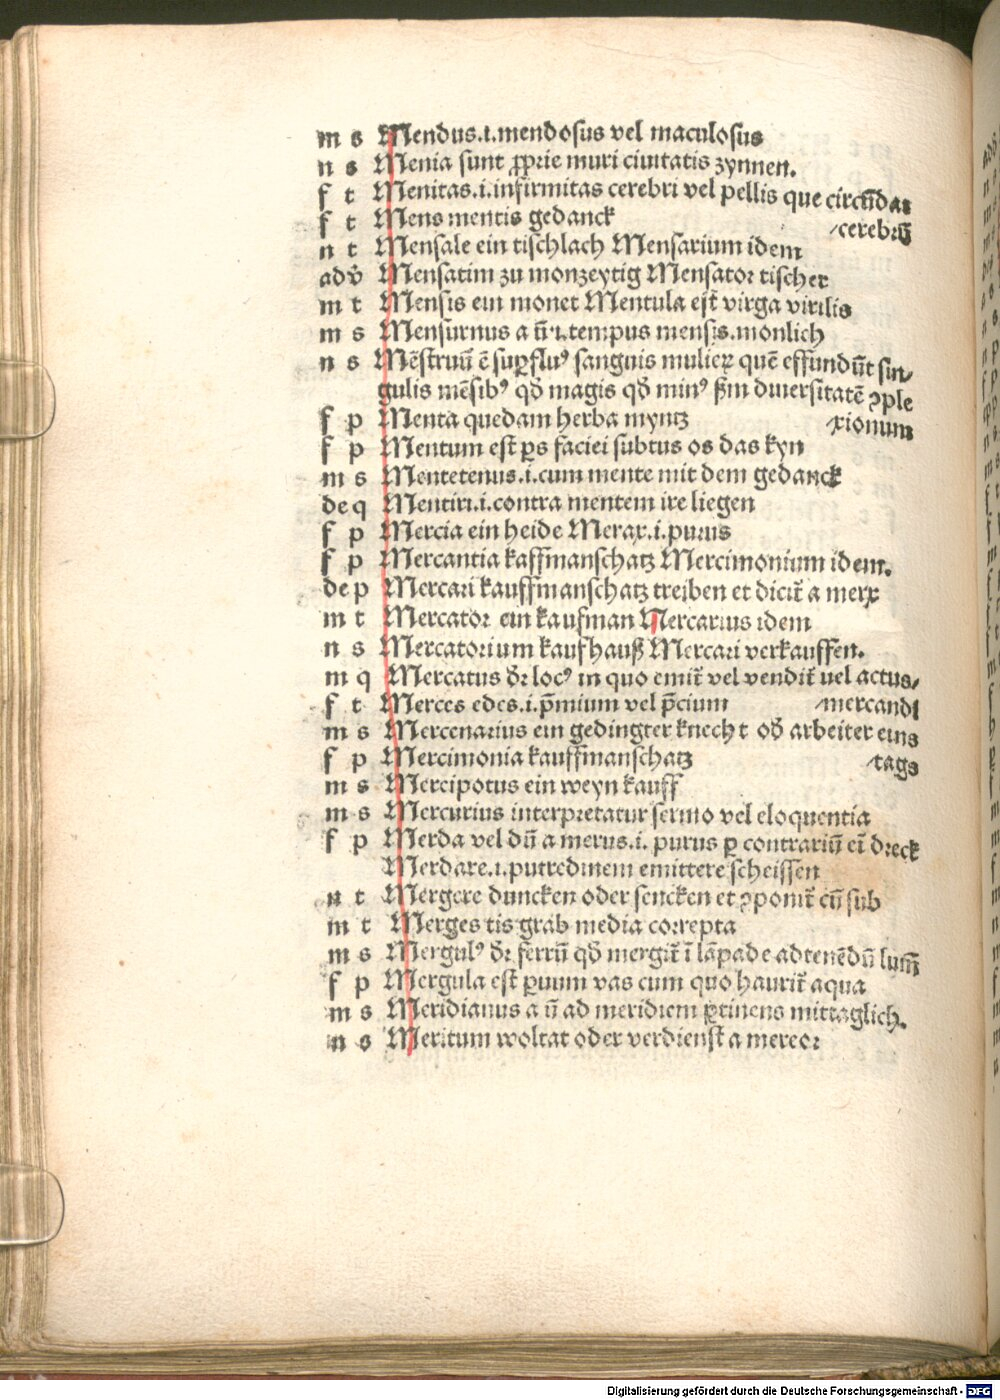 m s Mendus.i.mendosus vel maculosus
n s Menia sunt ꝓprie muri ciuitatis zynnen.
f t Menitas.i.infirmitas cerebri vel pellis que circūdat
f t Mens mentis gedanck /cerebrū
n t Mensale ein tischlach Mensarium idem
adv̄ Mensatim zu monzeytig Mensator tischer
m t Mensis ein monet Mentula est̄ virga virilis
m s Mensurnus a ū.i.tempus mensis.monlich
n s Mēstruū ē suꝑfluꝰ sanguis mulieꝝ quē effundūt sin/
gulis mēsibꝰ qd̄ magis qd̄ minꝰ ẜm diuersitatē ꝯple
f p Menta quedam herba myntz /xionum
f p Mentum est ꝑs faciei subtus os das kyn
m s Mentetenus.i.cum mente mit dem gedanck
de q Mentiri.i.contra mentem ire liegen
f p Mercia ein heide Merax.i.purus
f p Mercantia kaffmanschatz Mercimonium idem.
de p Mercari kauffmanschatz treiben et dicit̄ a merx
m t Mercator ein kaufman Mercarius idem
n s Mercatorium kaufhauß Mercari verkauffen.
m q Mercatus dr̄ locꝰ in quo emit̄ vel vendit̄ uel actus/
f t Merces edes.i.p̄mium vel p̄cium /mercandi
m s Mercenarius ein gedingter knecht od̄ arbeiter eins
f p Mercimonia kauffmanschatz /tags
m s Mercipotus ein weyn kauff
m s Mercurius interpretatur sermo vel eloquentia
f p Merda vel dū a merus.i. purus ꝑ contrariū ei dreck
Merdare.i.putredinem emittere scheissen
n t Mergere duncken oder sencken et ꝯponit̄ cū sub
m t Merges tis grab media correpta
m s Mergulꝰ dr̄ ferrū qd̄ mergit̄ ī lāpade ad tenēdū lumē
f p Mergula est ꝑuum vas cum quo haurit̄ aqua
m s Meridianus a ū ad meridiem ꝑtinens mittaglich.
n s Meritum woltat oder verdienst a mereor
Digitalisierung gefördert durch die Deutsche Forschungsgemeinschaft - DFG